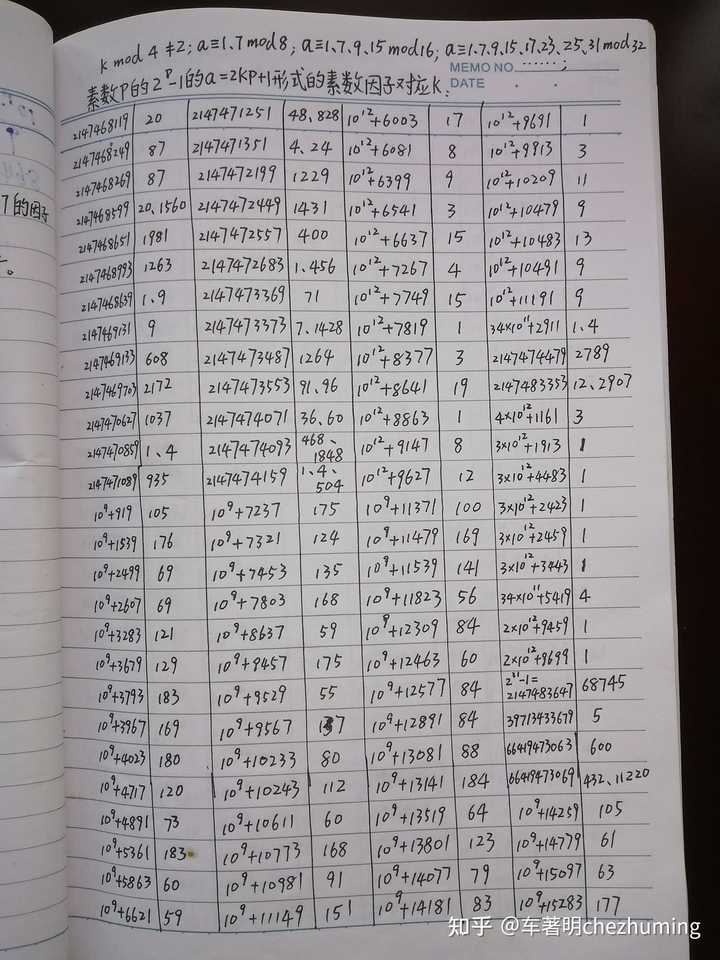 k mod 4 ≠2; a≡1.7 mod 8; a≡1.7.9.15 mod 16; a≡1.7.9.15.17.23.25.31 mod 32
MEMO NO. ......;
素数P的2^P-1的a=2kp+1形式的素数因子对应k:
DATE . .
2147468119 20 2147471251 48.828 10^12+6003 17 10^12+9691 1
2147468249 87 2147471351 4.24 10^12+6081 8 10^12+9913 3
2147468269 87 2147472199 1229 10^12+6399 9 10^12+10209 11
2147468599 20.1560 2147472449 1431 10^12+6541 3 10^12+10479 9
2147468651 1981 2147472557 400 10^12+6637 15 10^12+10483 13
2147468993 1263 2147472683 1.456 10^12+7267 4 10^12+10491 9
2147468639 1.9 2147473369 71 10^12+7749 15 10^12+11191 9
2147469131 9 2147473373 7.1428 10^12+7819 1 34×10^11+2911 1.4
2147469133 608 2147473487 1264 10^12+8377 3 2147474479 2789
2147469703 2172 2147473553 91.96 10^12+8641 19 2147483353 12.2907
2147470627 1037 2147474071 36.60 10^12+8863 1 4×10^12+1161 3
2147470859 1.4 2147474093 468、1848 10^12+9147 8 3×10^12+1913 1
2147471089 935 2147474159 1.4、504 10^12+9627 12 3×10^12+4483 1
10^9+919 105 10^9+7237 175 10^9+11371 100 3×10^12+2423 1
10^9+1539 176 10^9+7321 124 10^9+11479 169 3×10^12+2459 1
10^9+2499 69 10^9+7453 135 10^9+11539 141 3×10^12+3443 1
10^9+2607 69 10^9+7803 168 10^9+11823 56 34×10^11+5419 4
10^9+3283 121 10^9+8637 59 10^9+12309 84 2×10^12+9459 1
10^9+3679 129 10^9+9457 175 10^9+12463 60 2×10^12+9699 1
10^9+3793 183 10^9+9529 55 10^9+12577 84 2^31-1=2147483647 68745
10^9+3967 169 10^9+9567 137 10^9+12891 84 39713433679 5
10^9+4023 180 10^9+10233 80 10^9+13081 88 66419473063 600
10^9+4717 120 10^9+10243 112 10^9+13141 184 66419473069 432、11220
10^9+4891 73 10^9+10611 60 10^9+13519 64 10^9+14259 105
10^9+5361 183 10^9+10773 168 10^9+13801 123 10^9+14779 61
10^9+5863 60 10^9+10981 91 10^9+14077 79 10^9+15097 63
10^9+6621 59 10^9+11149 151 10^9+14181 83 10^9+15283 177
7的因子
知乎 @车著明chezhuming